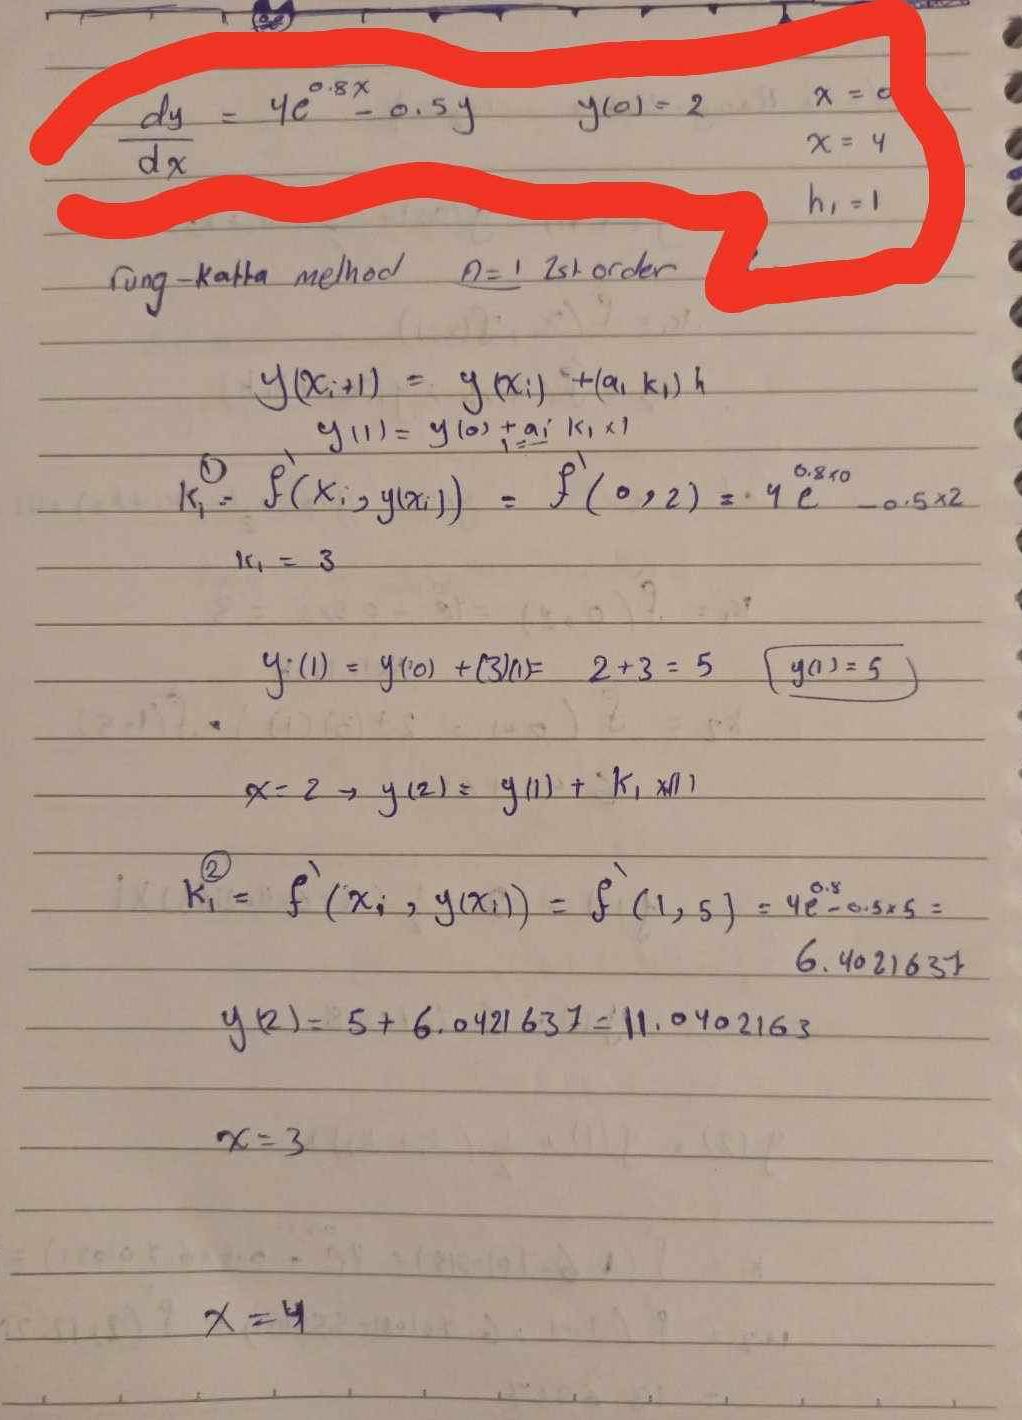 dy/dx = 4e^0.8x - 0.5y y(0) = 2 x = 0
x = 4
h₁ = 1
rung-katta method n=1 1st order
y(xᵢ+1) = y(xᵢ) + (a₁ k₁) h
y(1) = y(0) + a₁ k₁ x1
k₁① = f`(xᵢ, y(xᵢ)) = f`(0, 2) = 4e^0.8x0 - 0.5x2
k₁ = 3
y(1) = y(0) + (3)(1) = 2+3 = 5 y(1) = 5
x = 2 → y(2) = y(1) + k₁ x(1)
k₁② = f`(xᵢ, y(xᵢ)) = f`(1, 5) = 4e^0.8 - 0.5x5 =
6.4021637
y(2) = 5 + 6.0421637 = 11.0402163
x = 3
x = 4